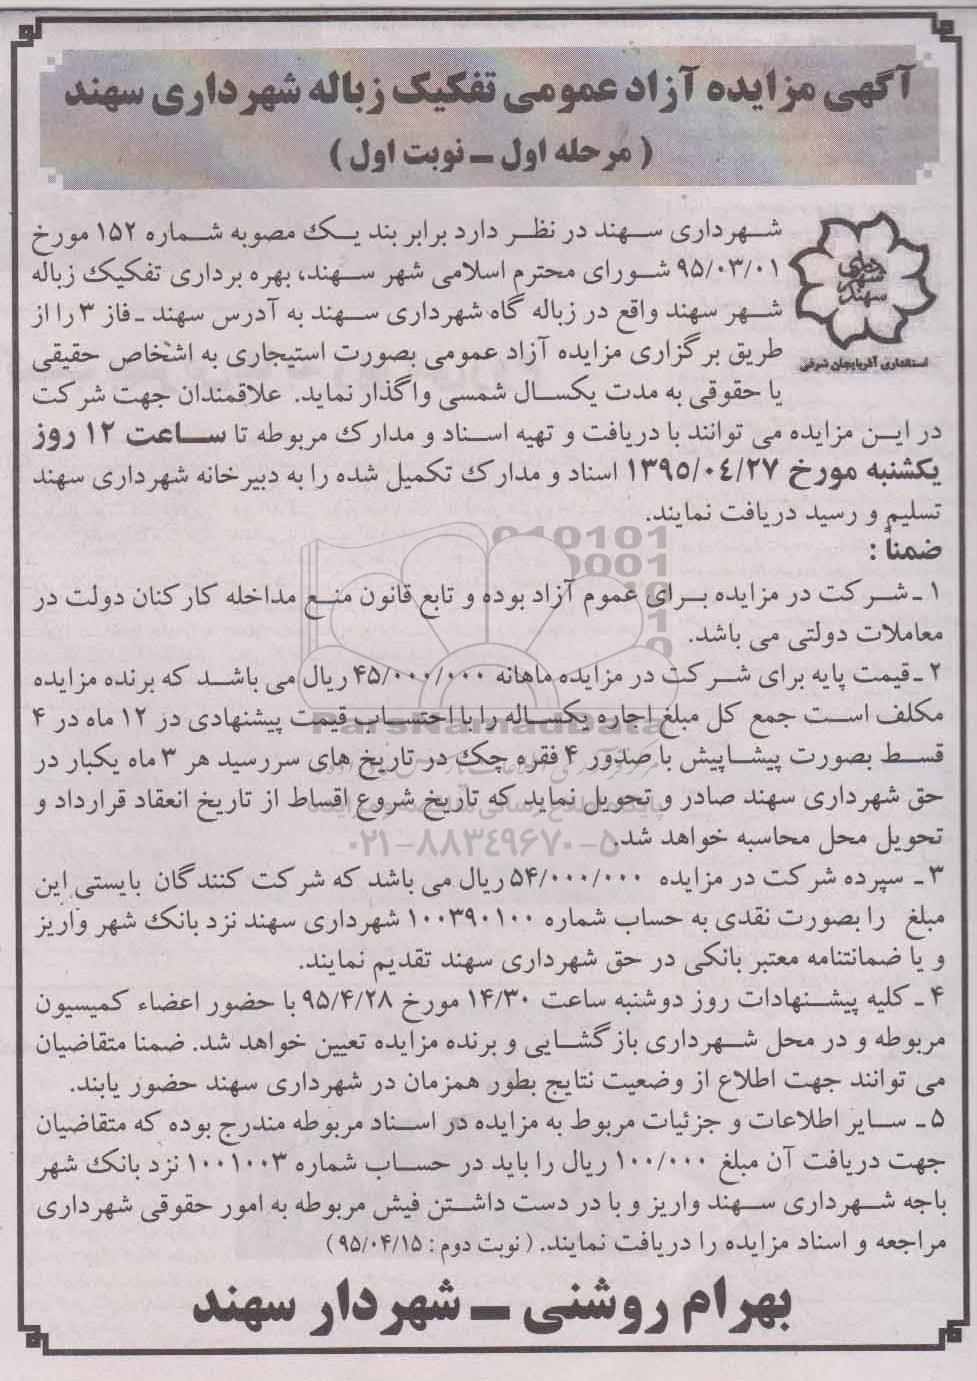 آگهی مزایده آزاد عمومی تفکیک زباله شهرداری سهند
( مرحله اول ـ نوبت اول )
شهرداری سهند
استانداری آذربایجان شرقی
شهرداری سهند در نظر دارد برابر بند یک مصوبه شماره ۱۵۲ مورخ
۹۵/۰۳/۰۱ شورای محترم اسلامی شهر سهند، بهره برداری تفکیک زباله
شهر سهند واقع در زباله گاه شهرداری سهند به آدرس سهند ـ فاز ۳ را از
طریق برگزاری مزایده آزاد عمومی بصورت استیجاری به اشخاص حقیقی
یا حقوقی به مدت یکسال شمسی واگذار نماید. علاقمندان جهت شرکت
در این مزایده می توانند با دریافت و تهیه اسناد و مدارک مربوطه تا ساعت ۱۲ روز
یکشنبه مورخ ۱۳۹۵/۰۴/۲۷ اسناد و مدارک تکمیل شده را به دبیرخانه شهرداری سهند
تسلیم و رسید دریافت نمایند.
ضمناً :
۱ ـ شرکت در مزایده برای عموم آزاد بوده و تابع قانون منع مداخله کارکنان دولت در
معاملات دولتی می باشد.
۲ ـ قیمت پایه برای شرکت در مزایده ماهانه ۴۵/۰۰۰/۰۰۰ ریال می باشد که برنده مزایده
مکلف است جمع کل مبلغ اجاره یکساله را با احتساب قیمت پیشنهادی در ۱۲ ماه در ۴
قسط بصورت پیشاپیش با صدور ۴ فقره چک در تاریخ های سررسید هر ۳ ماه یکبار در
حق شهرداری سهند صادر و تحویل نماید که تاریخ شروع اقساط از تاریخ انعقاد قرارداد و
تحویل محل محاسبه خواهد شد.
۳ ـ سپرده شرکت در مزایده ۵۴/۰۰۰/۰۰۰ ریال می باشد که شرکت کنندگان بایستی این
مبلغ را بصورت نقدی به حساب شماره ۱۰۰۳۹۰۱۰۰ شهرداری سهند نزد بانک شهر واریز
و یا ضمانتنامه معتبر بانکی در حق شهرداری سهند تقدیم نمایند.
۴ ـ کلیه پیشنهادات روز دوشنبه ساعت ۱۴/۳۰ مورخ ۹۵/۴/۲۸ با حضور اعضاء کمیسیون
مربوطه و در محل شهرداری بازگشایی و برنده مزایده تعیین خواهد شد. ضمنا متقاضیان
می توانند جهت اطلاع از وضعیت نتایج بطور همزمان در شهرداری سهند حضور یابند.
۵ ـ سایر اطلاعات و جزئیات مربوط به مزایده در اسناد مربوطه مندرج بوده که متقاضیان
جهت دریافت آن مبلغ ۱۰۰/۰۰۰ ریال را باید در حساب شماره ۱۰۰۱۰۰۳ نزد بانک شهر
باجه شهرداری سهند واریز و با در دست داشتن فیش مربوطه به امور حقوقی شهرداری
مراجعه و اسناد مزایده را دریافت نمایند. ( نوبت دوم : ۹۵/۰۴/۱۵)
بهرام روشنی ـ شهردار سهند
ParsNamadData
۰۲۱-۸۸۳٤۹۶۷۰-۵